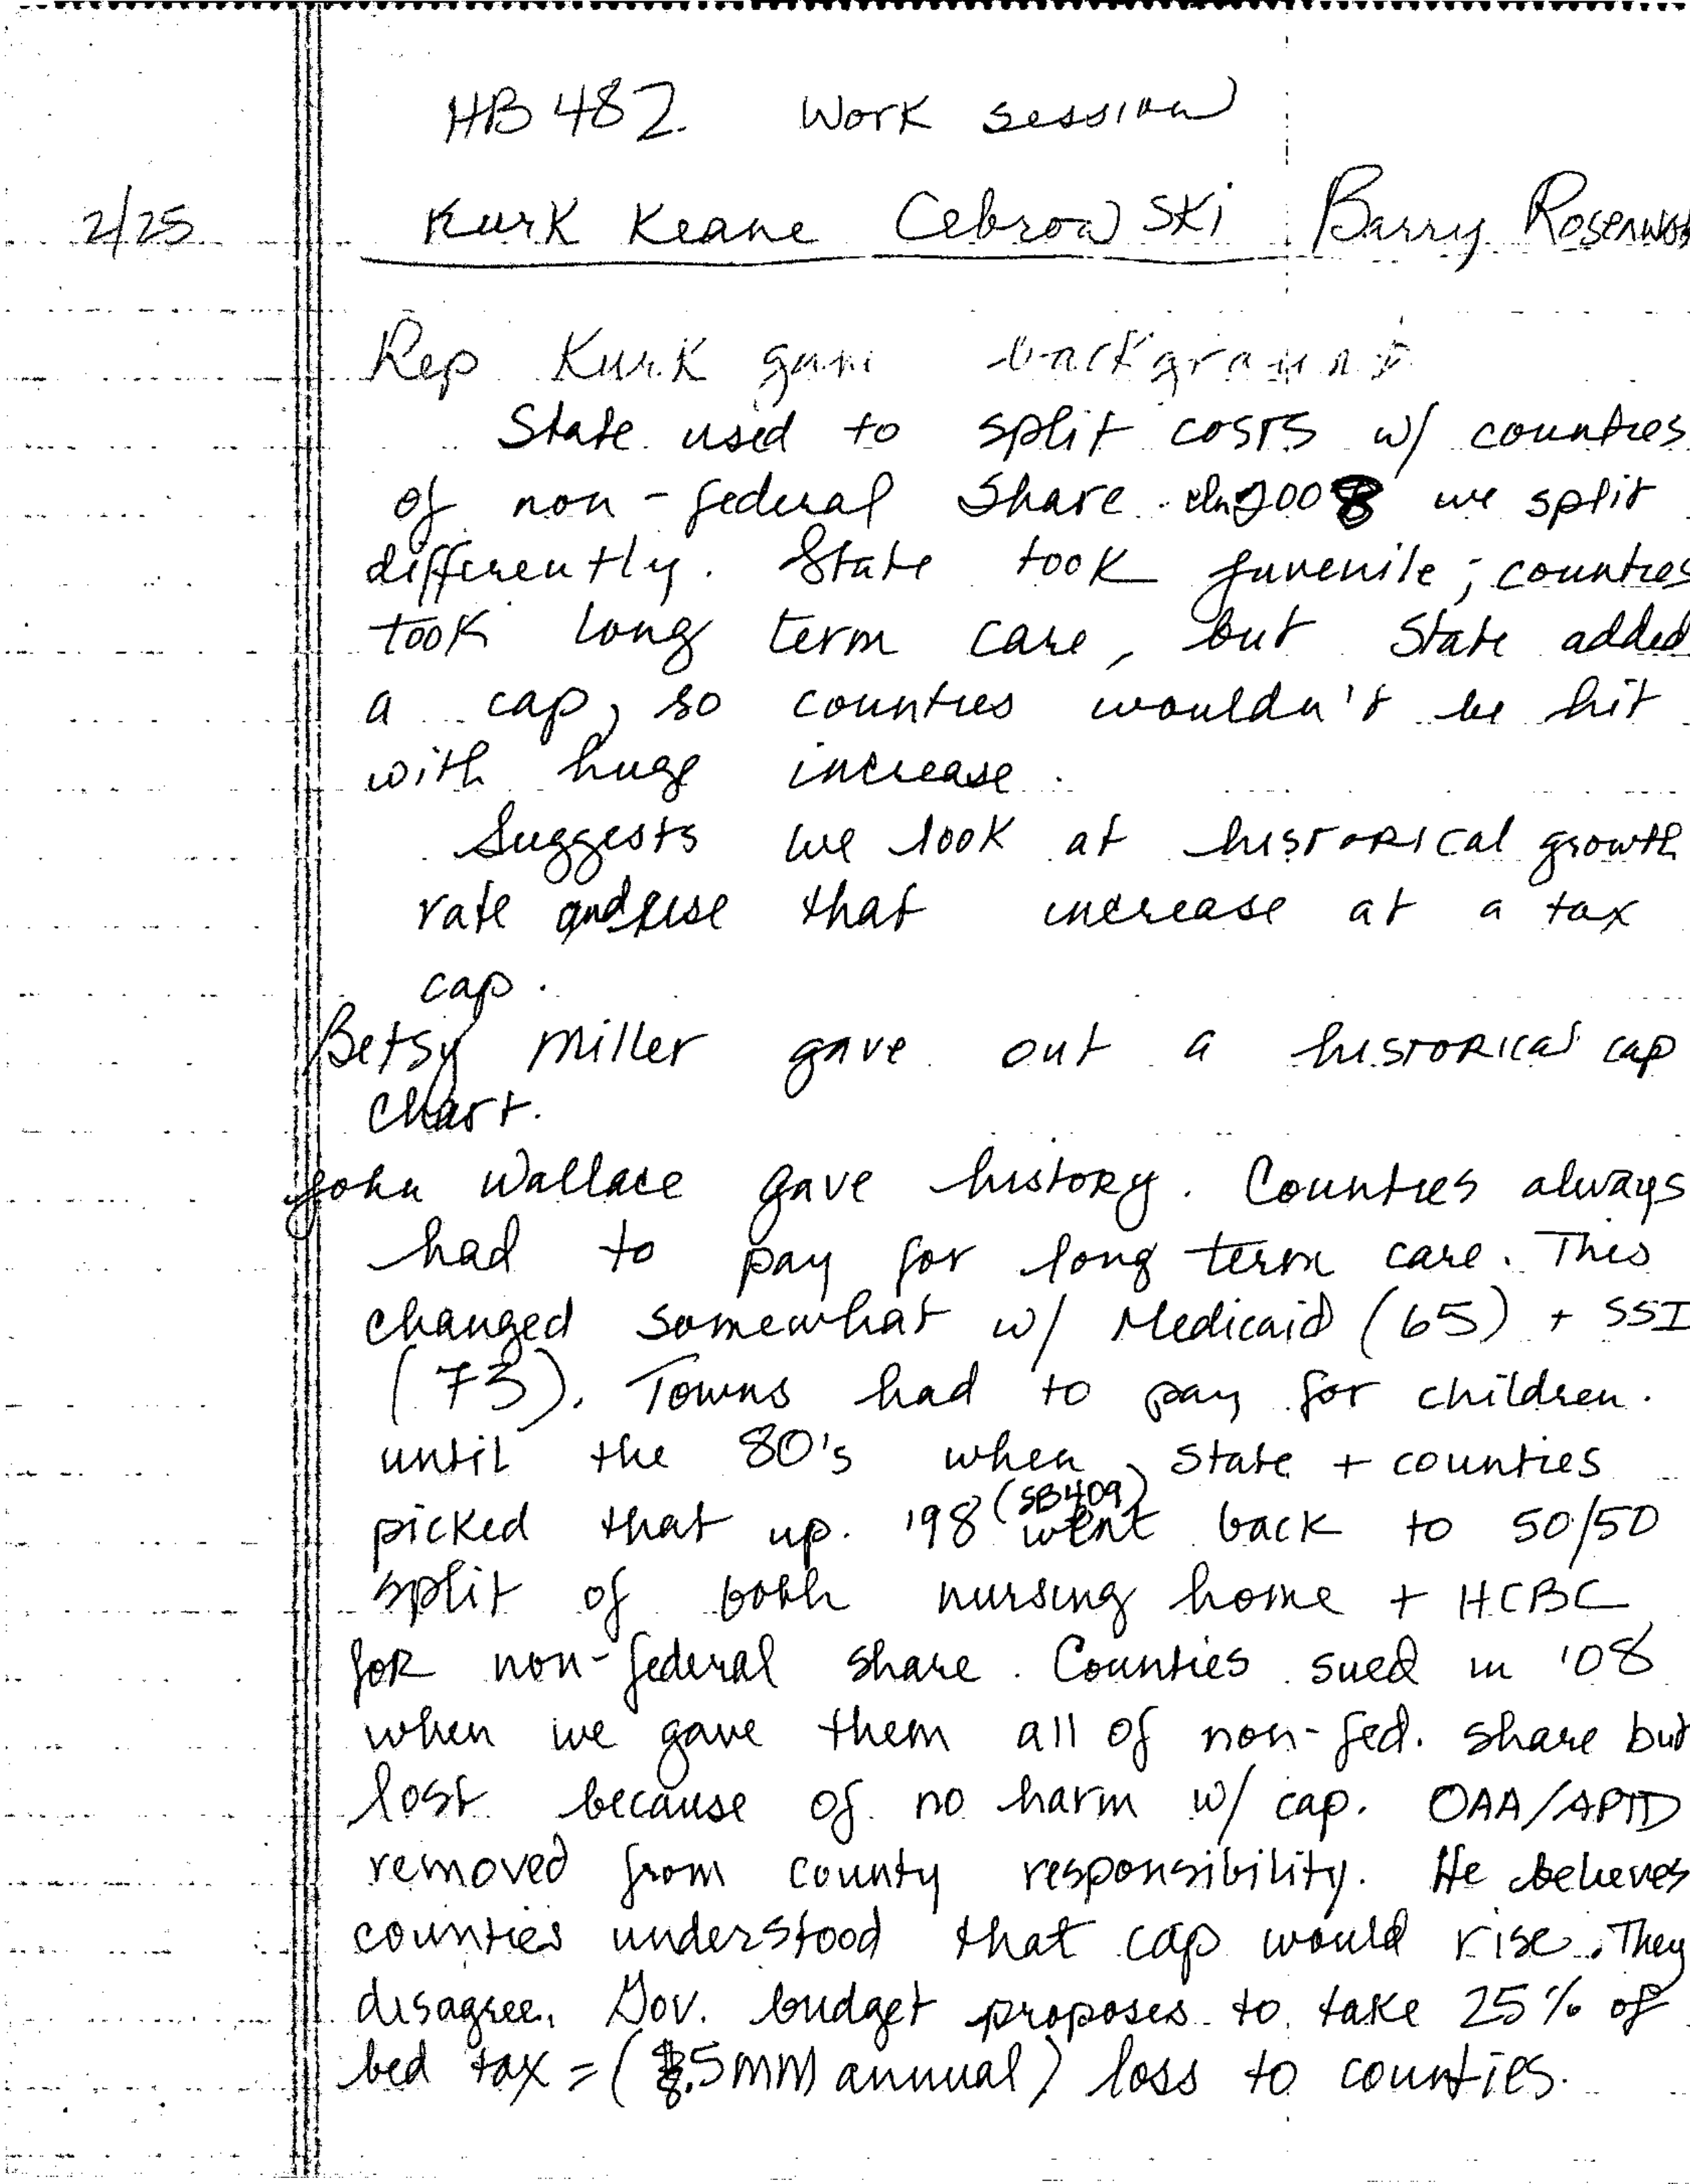 HB 482 Work session
2/25 Kurk Keane Cebrowski Barry
Rep Kurk gave background
State used to split costs w/ counties
of non-federal share. In 2008 we split
differently. State took juvenile; counties
took long term care, but State added
a cap, so counties wouldn't be hit
with huge increase.
Suggests we look at historical growth
rate and use that increase at a tax
cap.
Betsy Miller gave out a historical cap
Chart.
John Wallace gave history. Counties always
had to pay for long term care. This
changed somewhat w/ Medicaid (65) + SSI
(73). Towns had to pay for children.
until the 80's when State + counties
picked that up. '98 (SB409) went back to 50/50
split of both nursing home + HCBC
for non-federal share. Counties sued in '08
when we gave them all of non-fed. share but
lost because of no harm w/ cap. OAA/APTD
removed from county responsibility. He believes
counties understood that cap would rise. They
disagree. Gov. budget proposes to take 25% of
bed tax = ( annual) loss to counties.